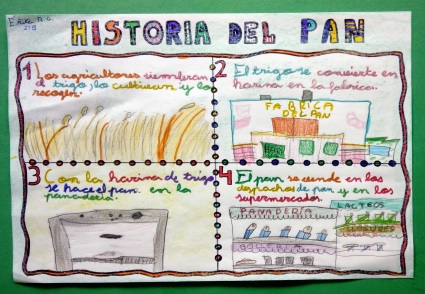 HISTORIA DEL PAN
1 Los agricultores siembran
el trigo, lo cultivan y lo
recogen.
2 El trigo se convierte en
harina en la fábrica.
FABRICA
DEL PAN
3 Con la harina de trigo
se hace el pan en la
panadería.
4 El pan se vende en los
despachos de pan y en los
supermercados.
PANADERÍA
LACTEOS